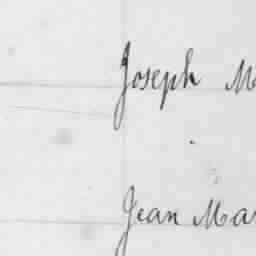 Joseph M
Jean Mar